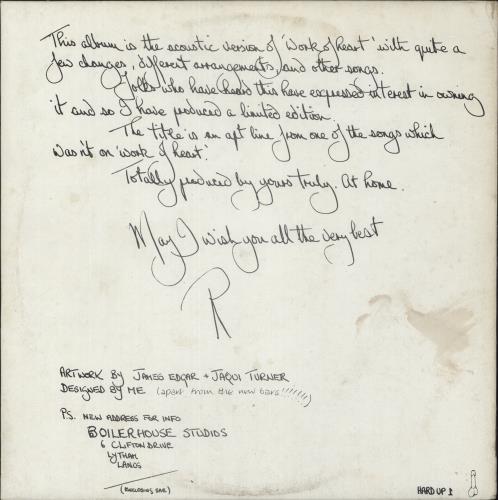 This album is the acoustic version of 'Work of heart' with quite a
few changes, different arrangements, and other songs.
Folks who have heard this have expressed interest in owning
it and so I have produced a limited edition.
The title is an apt line from one of the songs which
wasn't on 'work of heart'.
Totally produced by yours truly. At home.
May I wish you all the very best
R
ARTWORK BY JAMES EDGAR + JAQUI TURNER
DESIGNED BY ME (apart from the new bars!!!!!!!)
PS. NEW ADDRESS FOR INFO
BOILERHOUSE STUDIOS
6 CLIFTON DRIVE
LYTHAM
LANCS
(ENCLOSING SAE)
HARD UP 1